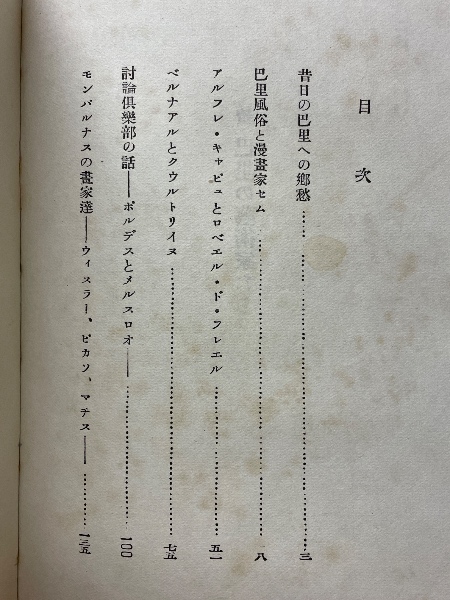 目次
昔日の巴里への鄕愁……………………三
巴里風俗と漫畫家セム……………………八
アルフレ・キャピュとロベエル・ド・フレエル……………………五一
ベルナアルとクウルトリイヌ……………………七五
討論俱樂部の話――ポルデスとメルスロオ――……………………一〇〇
モンパルナスの畫家達――ウィスラー、ピカソ、マチス――……………………一三五